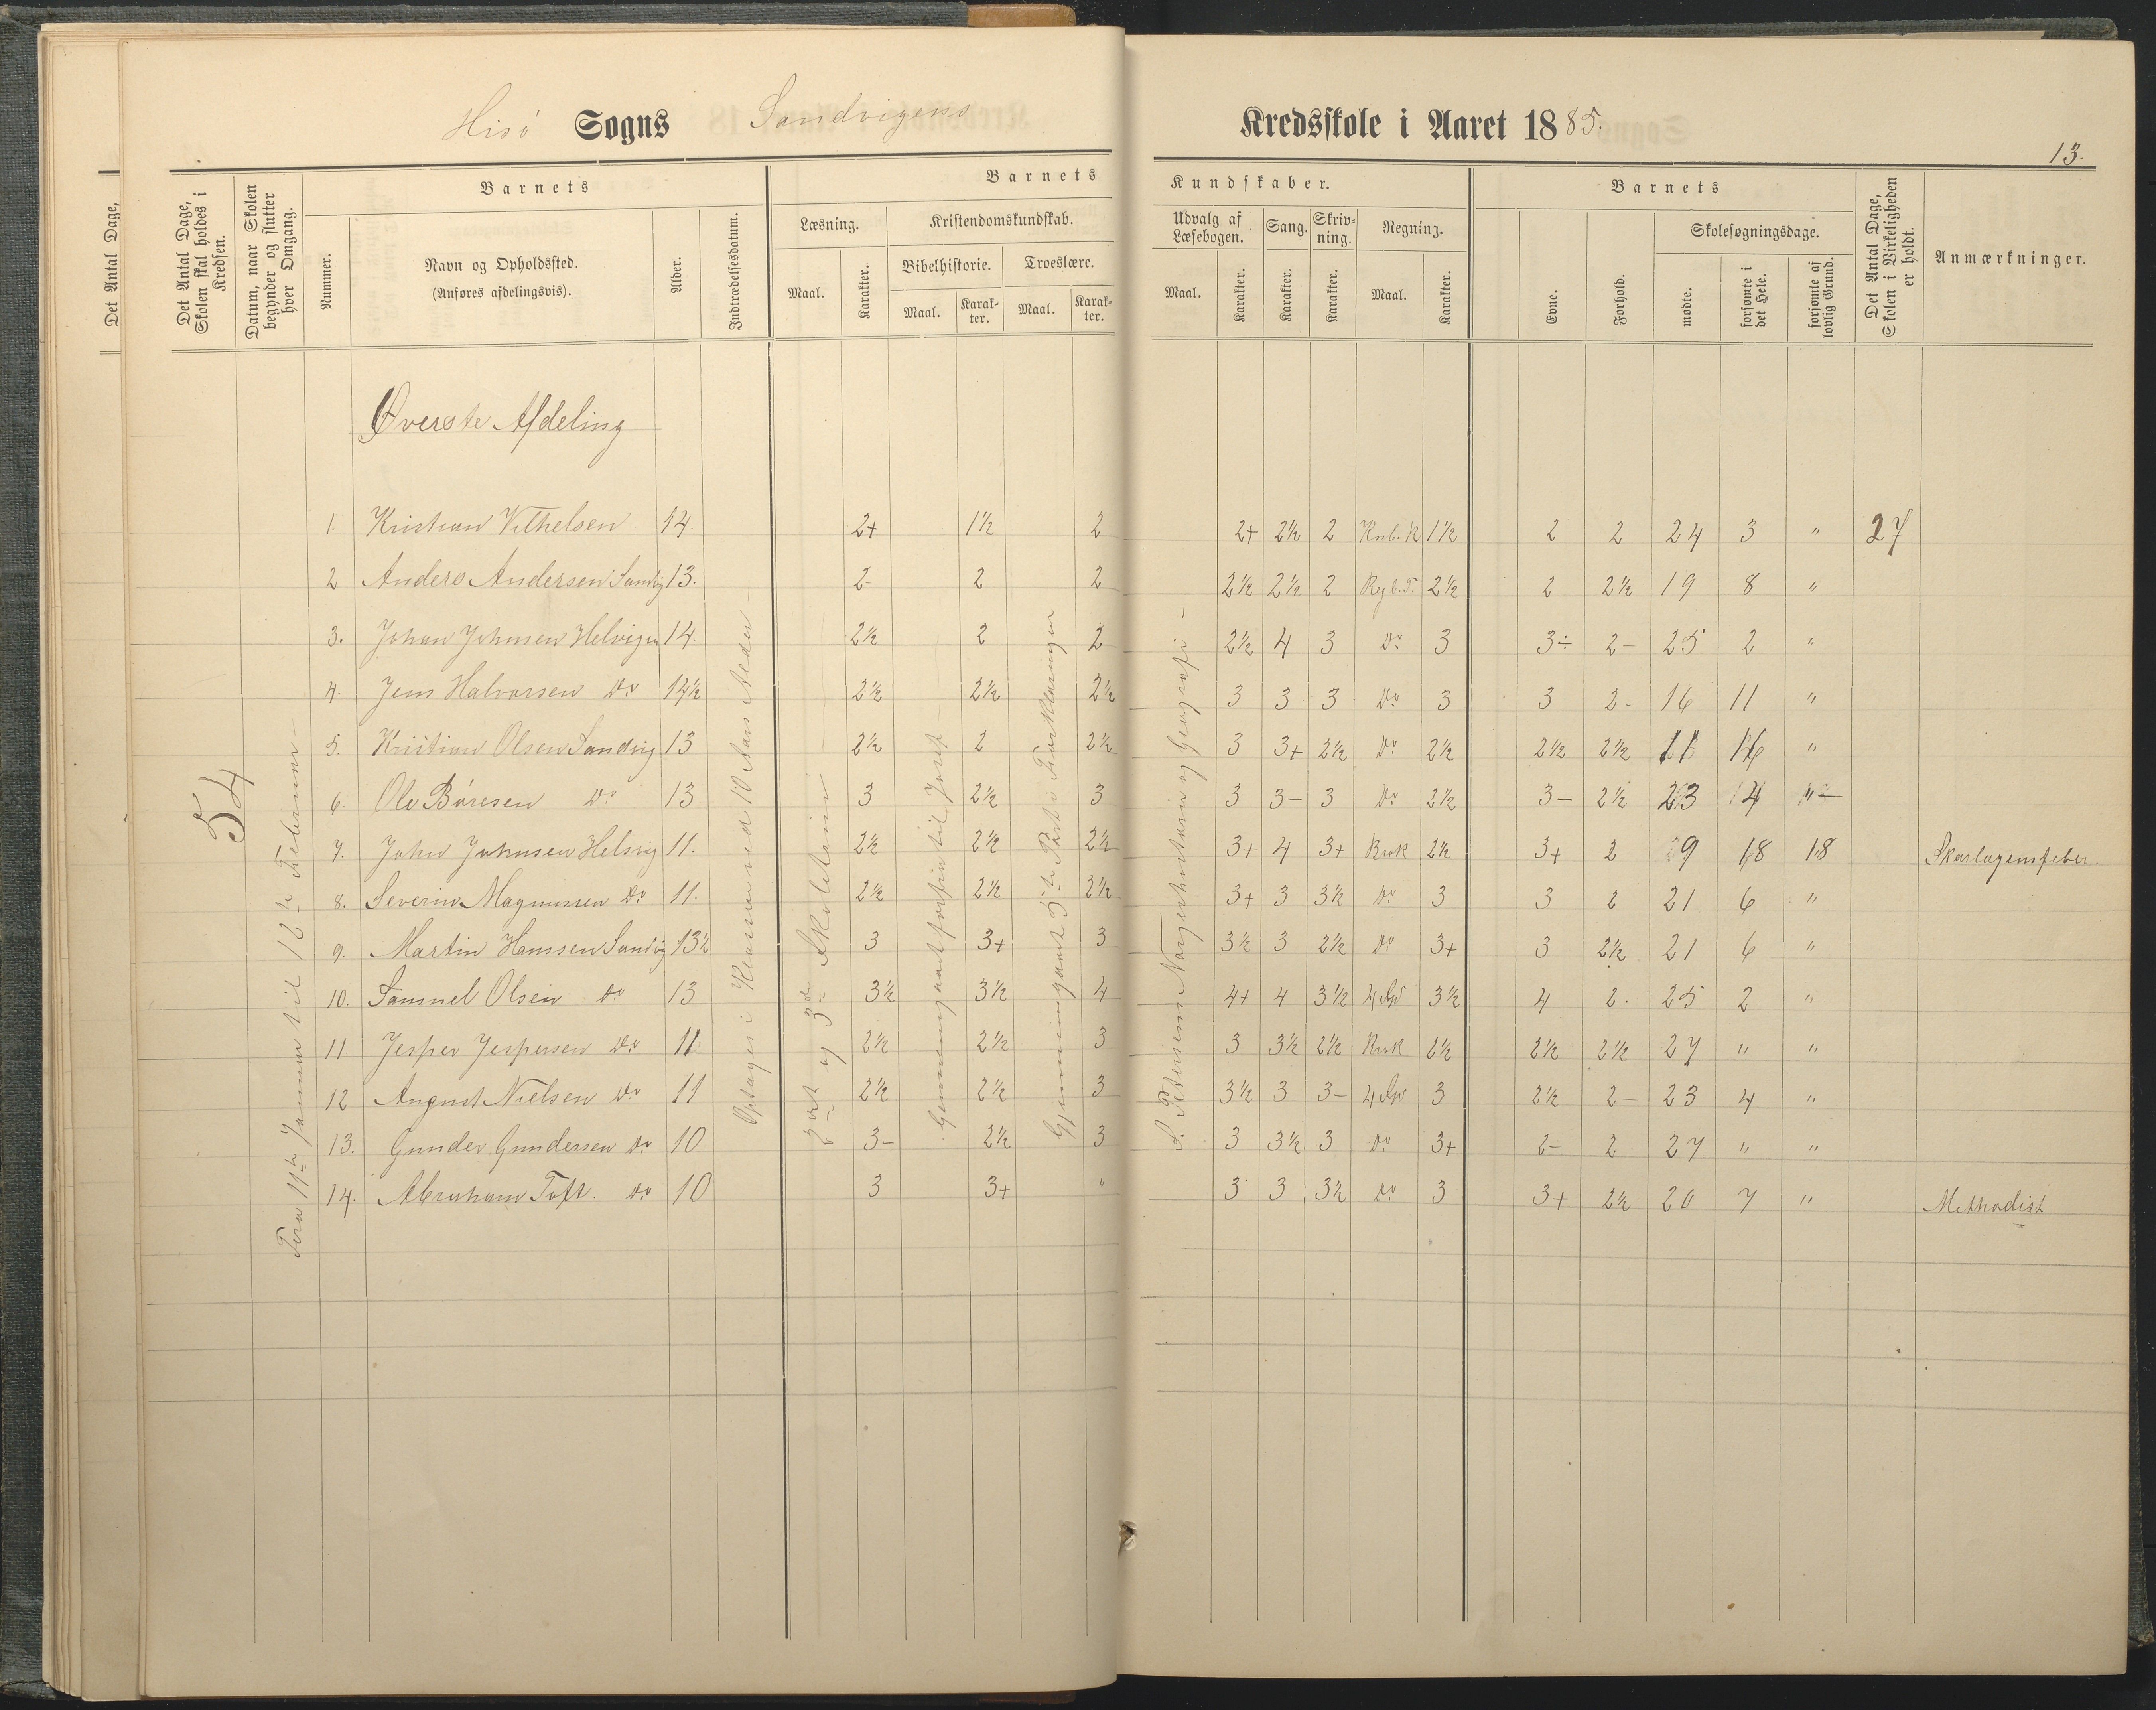 Hisö Sogns Sandvigens Kredsskole i Aaret 1885.
13.
Det Antal Dage,
Det Antal Dage, Skolen skal holdes i Kredsen.
Datum, naar Skolen begynder og slutter hver Omgang.
Barnets
Nummer.
Navn og Opholdssted.
(Anføres afdelingsvis).
Alder.
Indtrædelsesdatum.
Barnets Kundskaber.
Læsning.
Maal.
Karakter.
Kristendomskundskab.
Bibelhistorie.
Maal.
Karakter.
Troeslære.
Maal.
Karakter.
Udvalg af Læsebogen.
Maal.
Karakter.
Sang.
Karakter.
Skrivning.
Karakter.
Regning.
Maal.
Karakter.
Barnets
Evne.
Forhold.
Skolesøgningsdage.
mødte.
forsømte i det Hele.
forsømte af lovlig Grund.
Det Antal Dage, Skolen i Virkeligheden er holdt.
Anmærkninger.
Øverste Afdeling
54
Fra 11te Januar til 12te Februar
Optages i Klassen ved 10 Aars Alder
2det og 3die Skoletrin
Gjennemgaaet forfra til Josef
Gjennemgaaet 5te Part i Forklaringen
S. Petersens Norgeshistorie og Geografi
1. Kristian Vilhelsen 14. 2+ 1½ 2 2+ 2½ 2 1½ 2 2 24 3 " 27
2 Anders Andersen Sandvig 13. 2- 2 2 2½ 2½ 2 Regl. T. 2½ 2 2½ 19 8 "
3. Johan Johnsen Helvigen 14. 2½ 2 2 2½ 4 3 Do 3 3÷ 2- 25 2 "
4. Jens Halvorsen Do 14½ 2½ 2½ 2½ 3 3 3 Do 3 3 2- 16 11 "
5. Kristian Olsen Sandvig 13 2½ 2 2½ 3 3+ 2½ Do 2½ 2½ 2½ 11 16 "
6. Ole Böresen Do 13 3 2½ 3 3 3- 3 Do 2½ 3- 2½ 23 4 "
7. John Johnsen Helvig 11. 2½ 2½ 2½ 3+ 4 3+ Brøk 2½ 3+ 2 9 18 18 Skarlagensfeber.
8. Severin Magnussen Do 11. 2½ 2½ 2½ 3+ 3 3½ Do 3 3 2 21 6 "
9. Martin Hanssen Sandvig 13½ 3 3+ 3 3½ 3 2½ Do 3+ 3 2½ 21 6 "
10. Samuel Olsen Do 13 3½ 3½ 4 4+ 4 3½ 4 Sp 3½ 4 2. 25 2 "
11. Jesper Jespersen Do 11 2½ 2½ 3 3 3½ 2½ Brøk 2½ 2½ 2½ 27 " "
12 August Nielsen Do 11 2½ 2½ 3 3½ 3 3- 4 Sp 3 2½ 2- 23 4 "
13. Gunder Gundersen Do 10 3- 2½ 3 3 3½ 3 Do 3+ 2- 2 27 " "
14. Abraham Toft. Do 10 3 3+ " 3 3 3½ Do 3 3+ 2½ 20 7 " Methodist